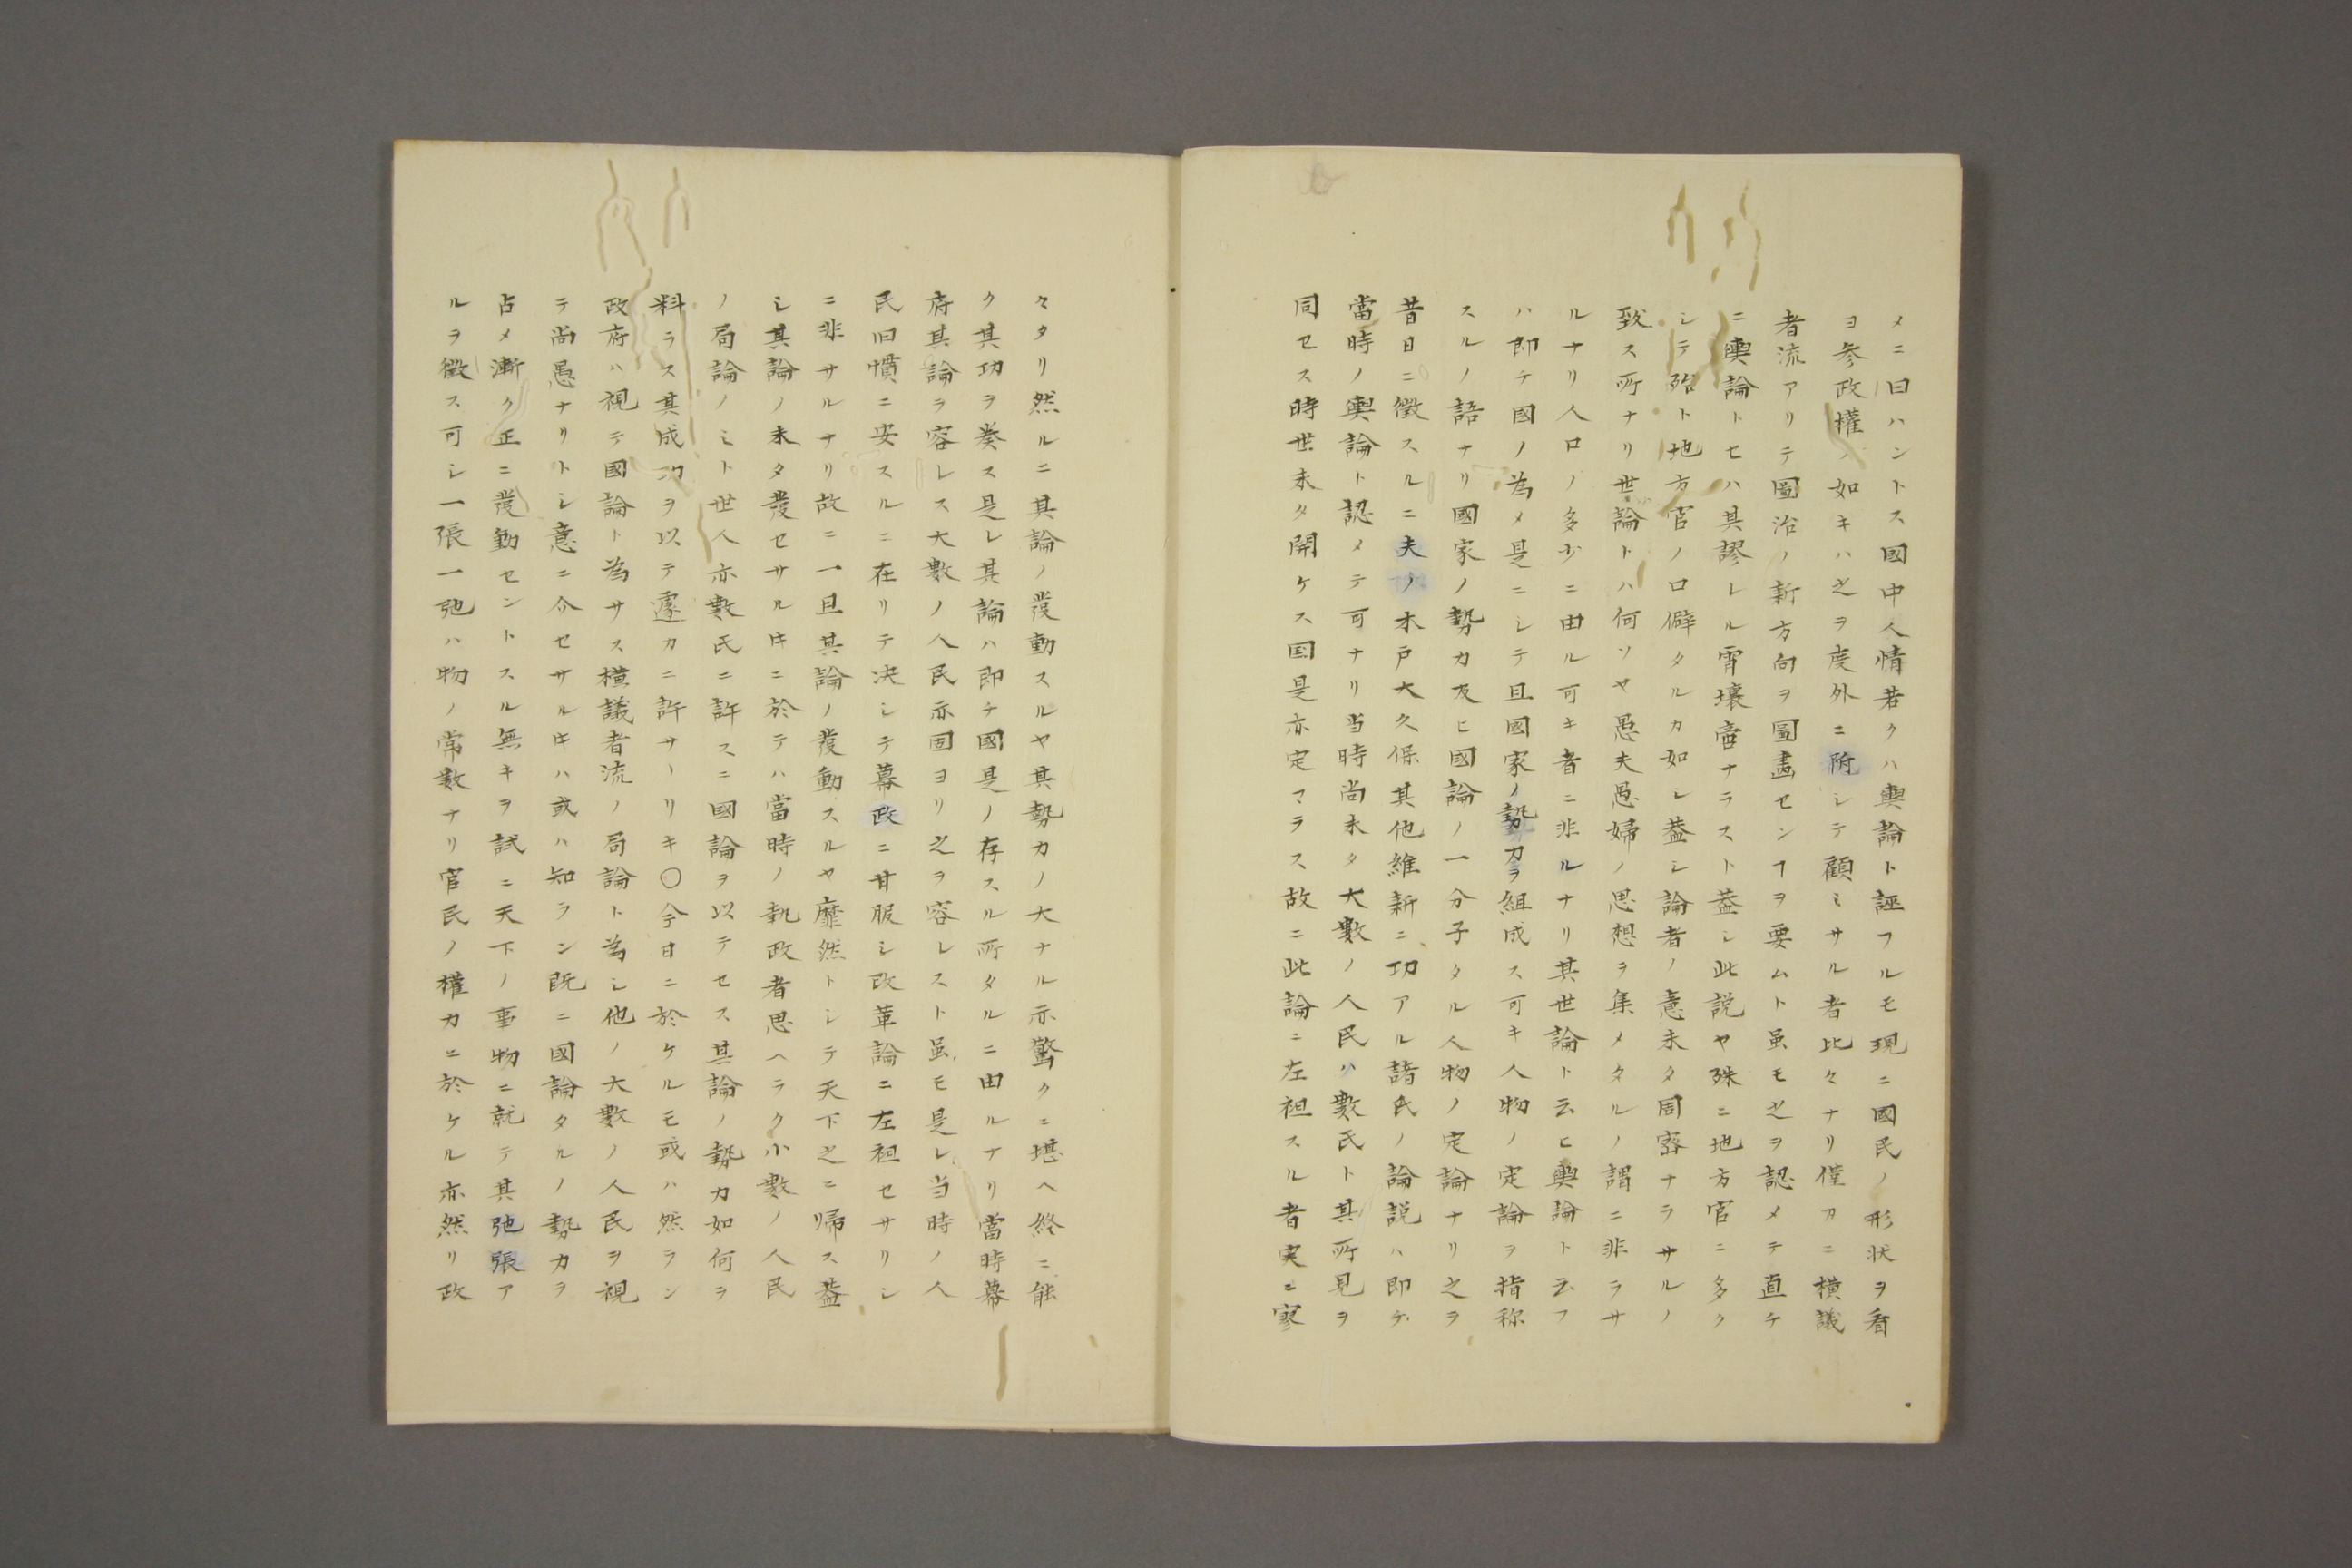 メニ曰ハントス國中人情若クハ輿論ト誣フルモ現ニ國民ノ形状ヲ看
ヨ参政權ノ如キハ之ヲ度外ニ附シテ顧ミサル者比々ナリ僅カニ横議
者流アリテ圖治ノ新方向ヲ圖畵センヿヲ要ムト虽モ之ヲ認メテ直チ
ニ輿論トセハ其謬レル霄壤啻ナラスト蓋シ此説ヤ殊ニ地方官ニ多ク
シテ殆ト地方官ノ口僻タルカ如シ蓋シ論者ノ意未タ周密ナラサルノ
致ス所ナリ世論トハ何ソヤ愚夫愚婦ノ思想ヲ集メタルノ謂ニ非ラサ
ルナリ人口ノ多少ニ由ル可キ者ニ非ルナリ其世論ト云ヒ輿論ト云フ
ハ即チ國ノ為メ是ニシテ且國家ノ勢力ヲ組成ス可キ人物ノ定論ヲ指称
スルノ語ナリ國家ノ勢力及ヒ國論ノ一分子タル人物ノ定論ナリ之ヲ
昔日ニ徴スルニ夫ノ木戸大久保其他維新ニ功アル諸氏ノ論説ハ即チ
當時ノ輿論ト認メテ可ナリ当時尚未タ大數ノ人民ハ數氏ト其所見ヲ
同セス時世未タ開ケス国是亦定マラス故ニ此論ニ左袒スル者実ニ寥
々タリ然ルニ其論ノ發動スルヤ其勢力ノ大ナル亦驚クニ堪ヘ終ニ能
ク其功ヲ奏ス是レ其論ハ即チ國是ノ存スル所タルニ由ルナリ當時幕
府其論ヲ容レス大數ノ人民亦固ヨリ之ヲ容レスト虽モ是レ当時ノ人
民旧慣ニ安スルニ在リテ决シテ幕政ニ甘服シ改革論ニ左袒セサリシ
ニ非サルナリ故ニ一旦其論ノ發動スルヤ靡然トシテ天下之ニ帰ス蓋
シ其論ノ未タ發セサル𪜈ニ於テハ當時ノ執政者思ヘラク小數ノ人民
ノ局論ノミト世人亦數氏ニ許スニ國論ヲ以テセス其論ノ勢力如何ヲ
料ラス其成功ヲ以テ遽カニ許サヽリキ〇今日ニ於ケルモ或ハ然ラン
政府ハ視テ國論ト為サス横議者流ノ局論ト為シ他ノ大數ノ人民ヲ視
テ尚愚ナリトシ意ニ介セサル𪜈ハ或ハ知ラン既ニ國論タルノ勢力ヲ
占メ漸ク正ニ發動セントスル無キヲ試ニ天下ノ事物ニ就テ其弛張ア
ルヲ徴ス可シ一張一弛ハ物ノ常數ナリ官民ノ權力ニ於ケル亦然リ政